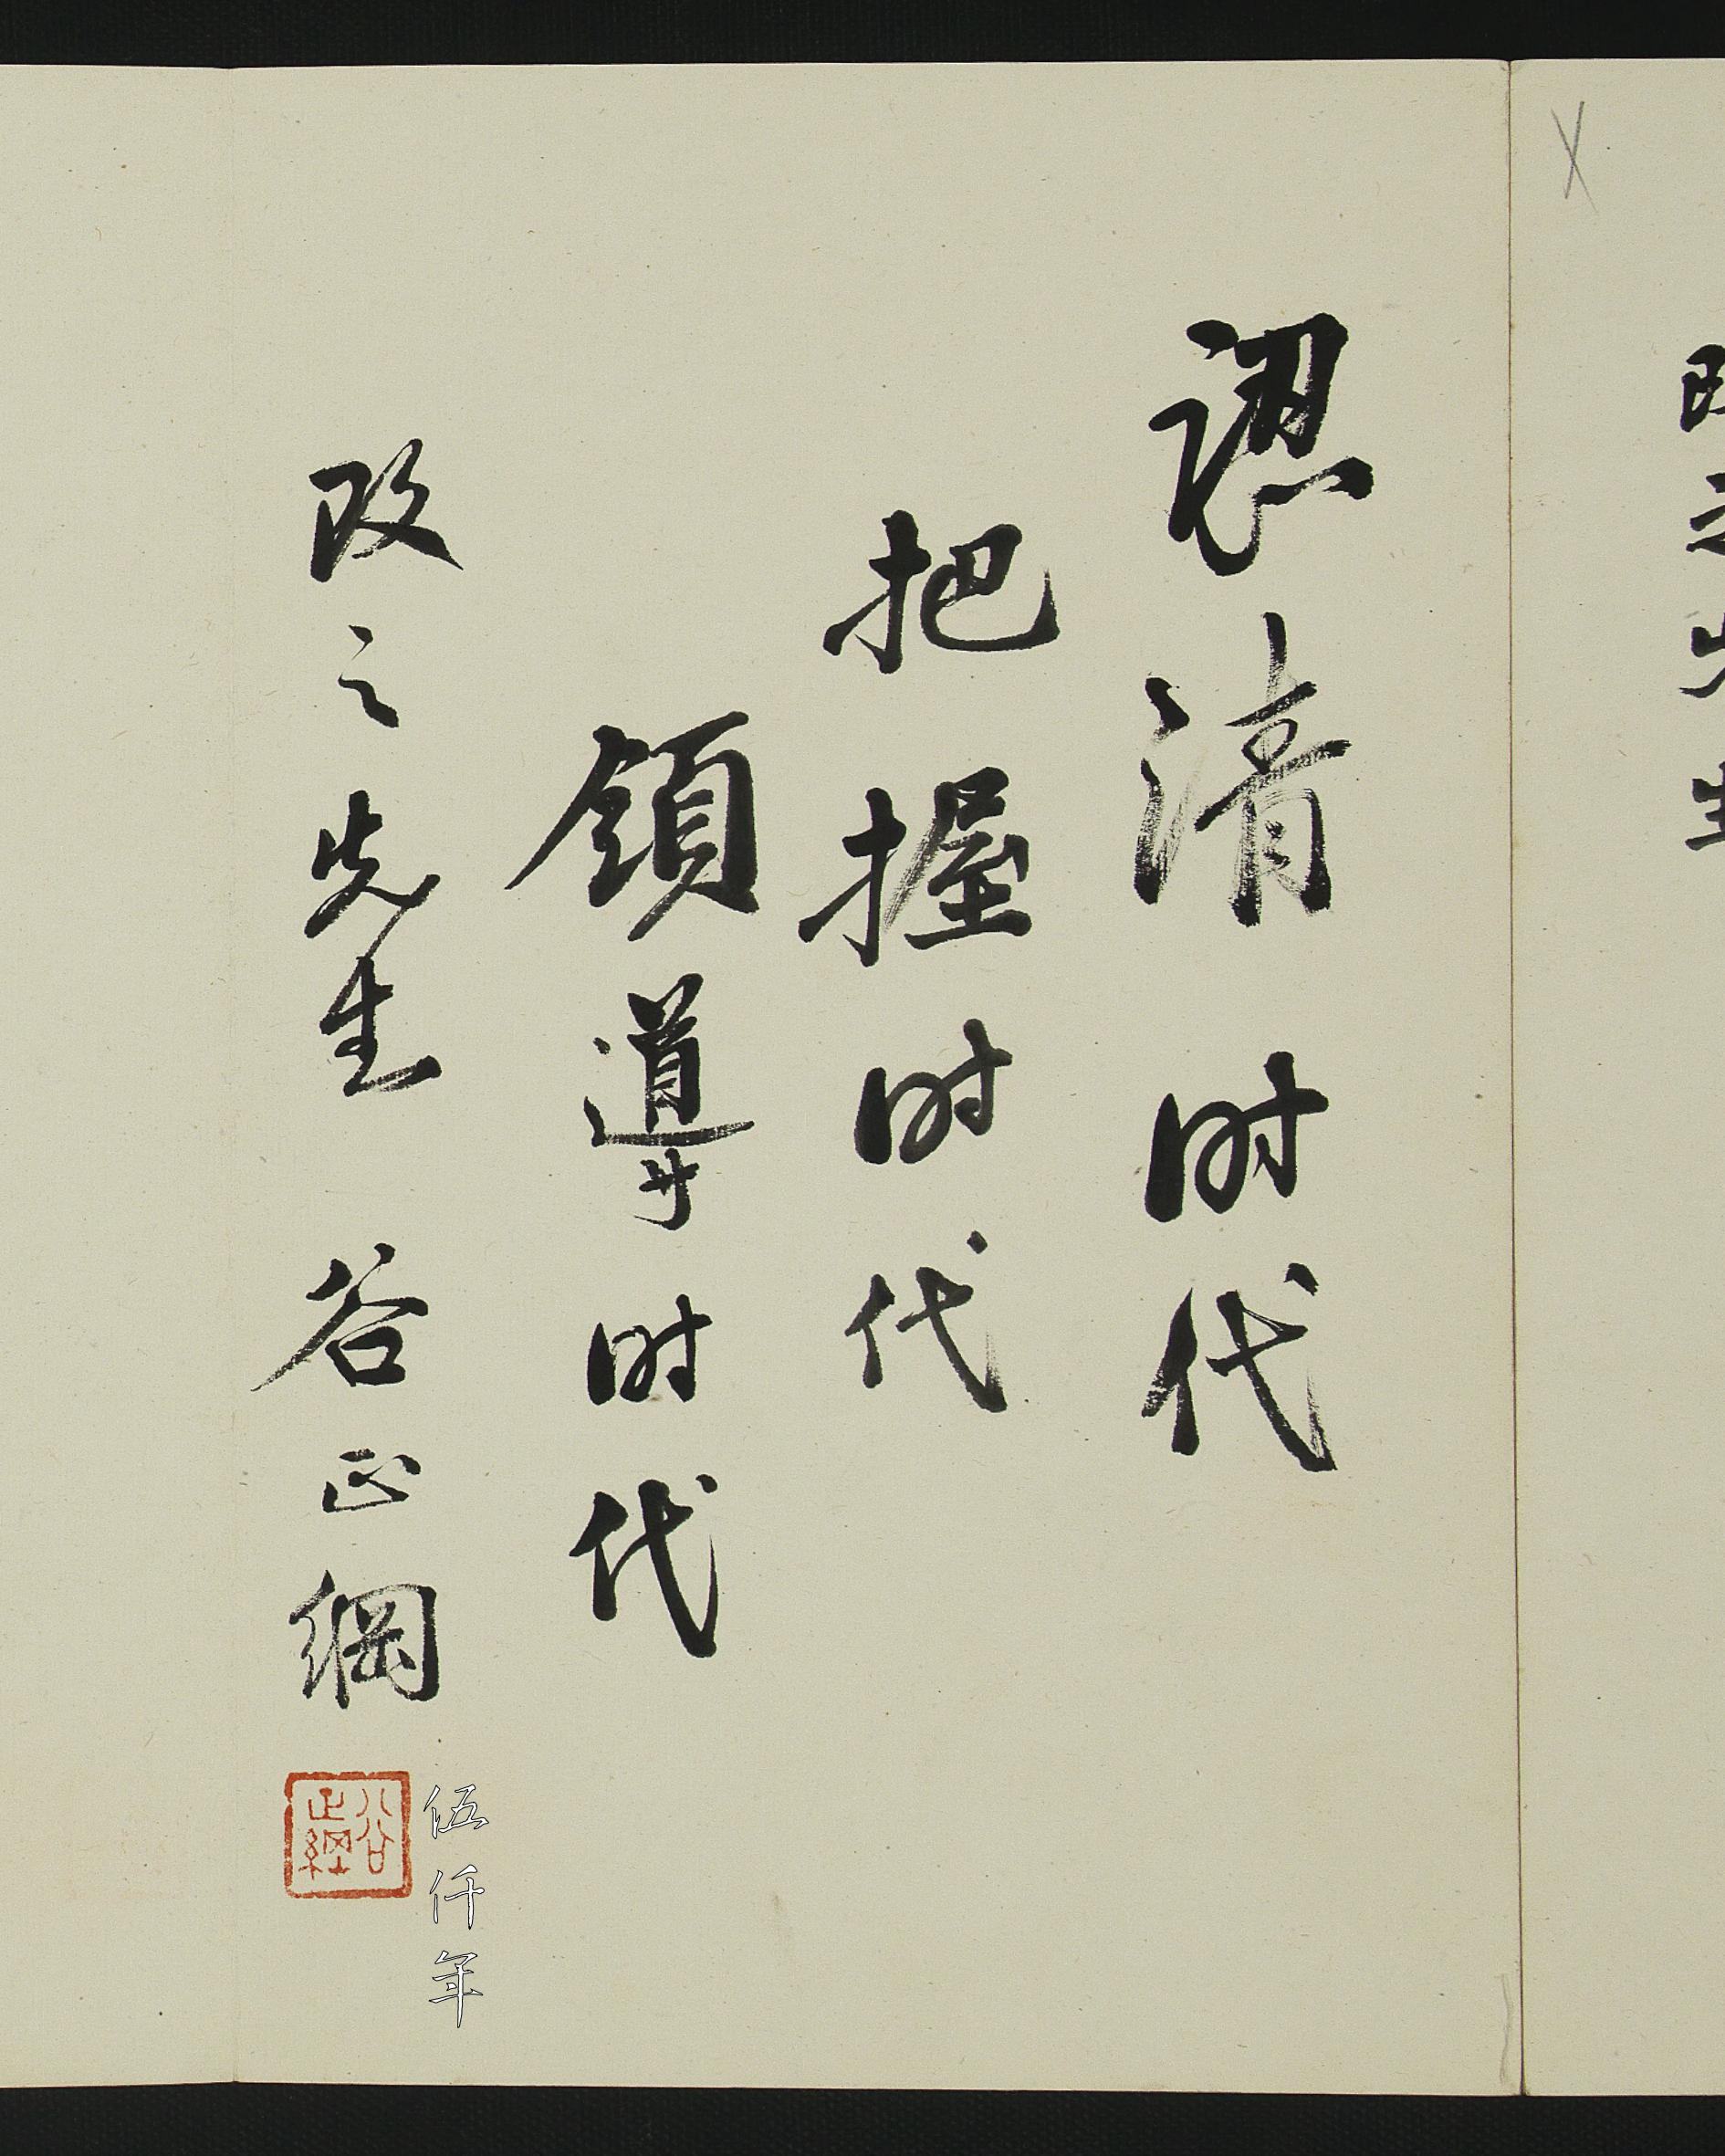 認清时代
把握时代
領導时代
改之先生 谷正綱
谷正綱
伍仟年